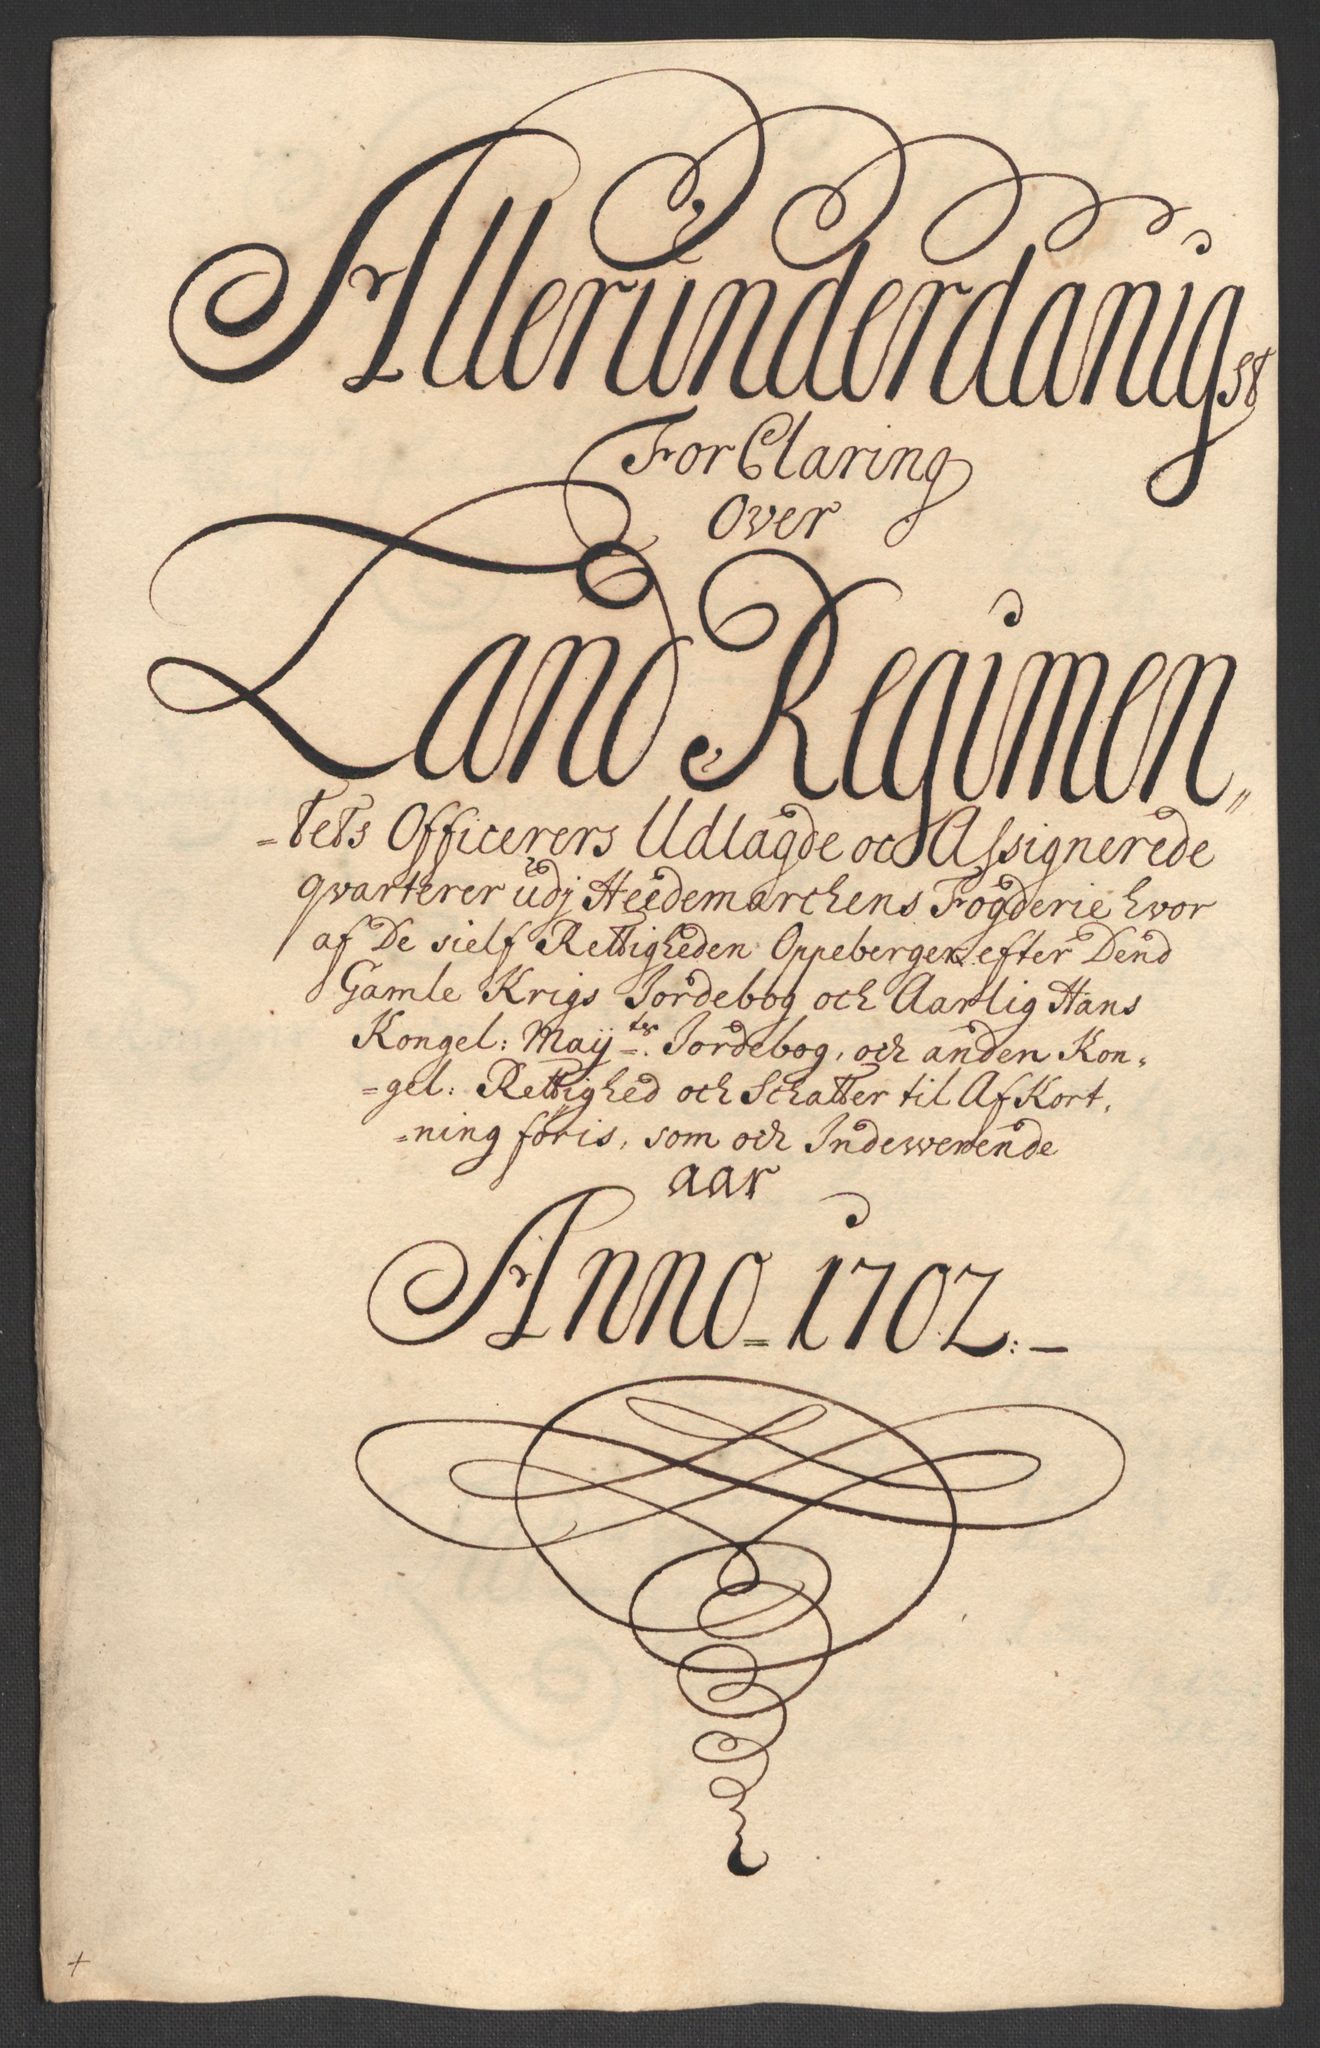 Allerunderdanigst
ForClaring
Over
Land Regimen„
=tets Officerers Udlagde och Assignerede
qvarterer udj Heedemarchens Fogderie hvor
af De sielf Rettigheden Oppeberger efter Dend
Gamle Krigs Jordebog och Aarlig Hans
Kongel: Mayts. Jordebog, och anden Kon„
=gel: Rettighed och Schatter til AfKort„
=ning föris, som och Indewerende
aar
Anno = 1702:—